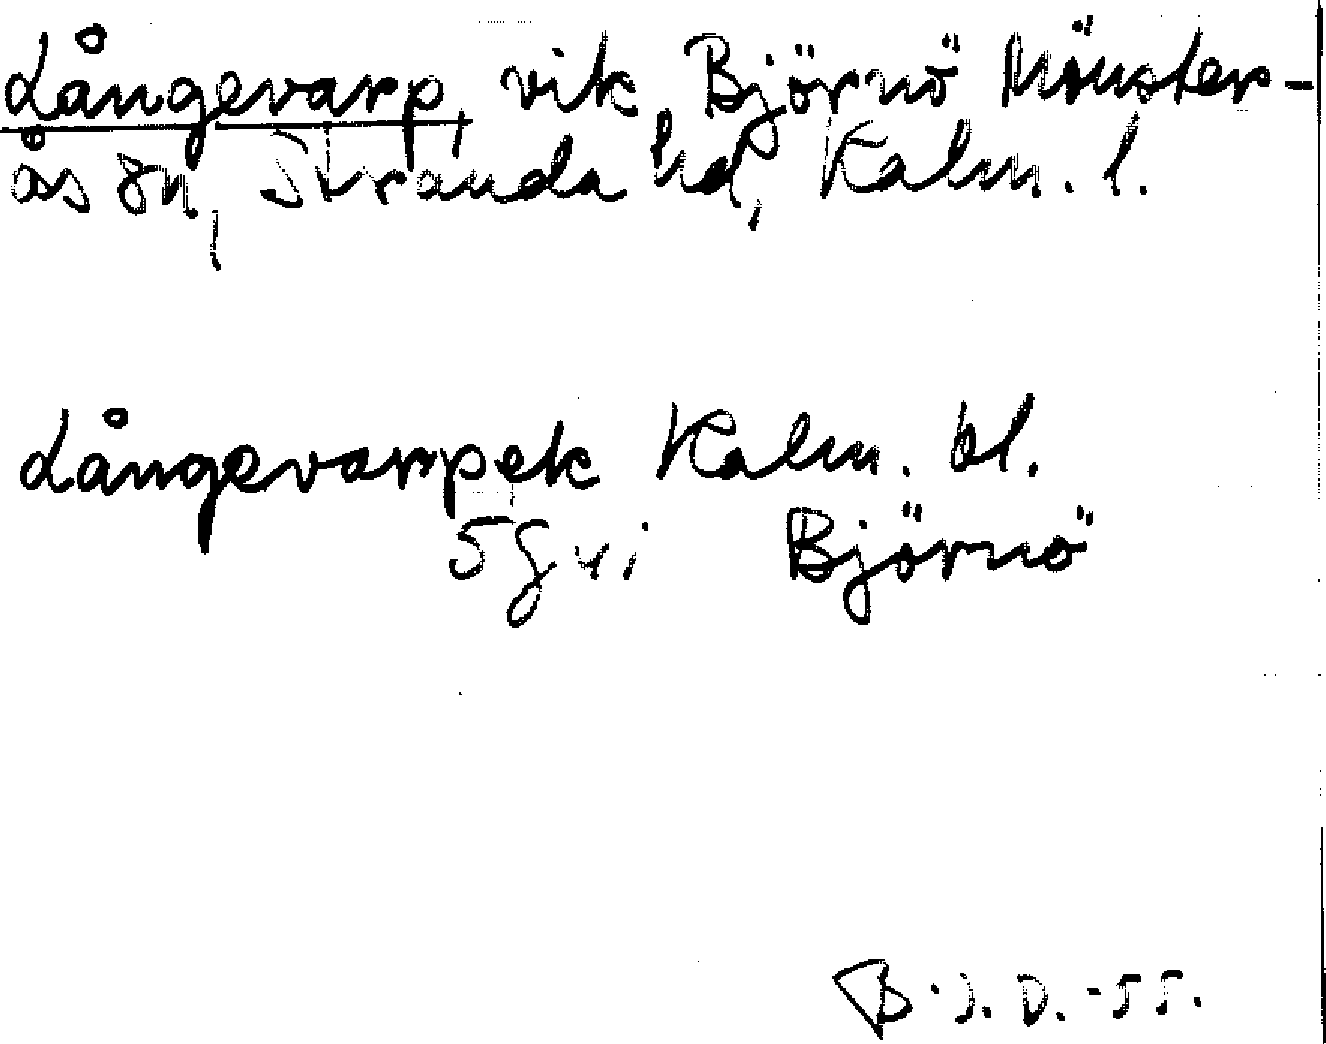 Långevarp, vik, Björnö Mönster-
ås sn, Stranda hd, Kalm. l.
Långevarpek Kalm. bl.
5g vi Björnö
B.J.D.-55.